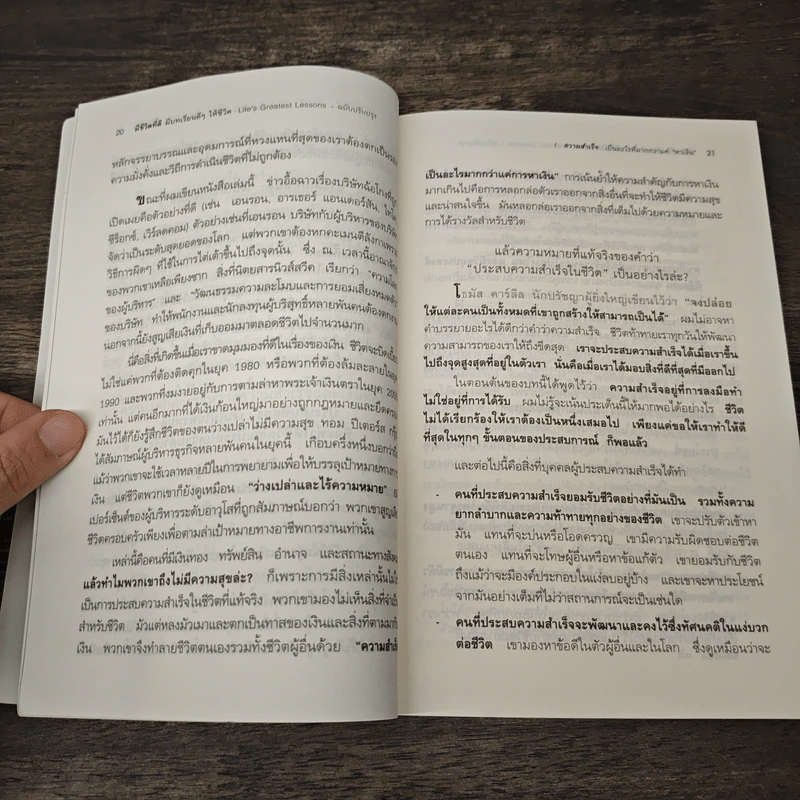 20 มีชีวิตที่ดี มีบทเรียนดีๆ ให้ชีวิต Life's Greatest Lessons - ฉบับปรับปรุง
หลักจรรยาบรรณและอุดมการณ์ที่หวงแหนที่สุดของเราต้องตกเป็นรอง
ความมั่งคั่งและวิถีการดำเนินชีวิตที่ไม่ถูกต้อง
ขณะที่ผมเขียนหนังสือเล่มนี้ ข่าวอื้อฉาวเรื่องบริษัทฉ้อโกงที่ถูก
เปิดเผยคือตัวอย่างที่ดี (เช่น เอนรอน, อาร์เธอร์ แอนเดอร์สัน, ไทโค
ซีร็อกซ์, เวิร์ลดคอม) ตัวอย่างเช่นที่เอนรอน บริษัทกับผู้บริหารของบริษัท
จัดว่าเป็นระดับสุดยอดของโลก แต่พวกเขาต้องหกคะเมนตีลังกาเพราะ
วิธีการผิดๆ ที่ใช้ในการไต่เต้าขึ้นไปถึงจุดนั้น ซึ่ง ณ เวลานี้อาณาจักร
ของพวกเขาเหลือเพียงซาก สิ่งที่นิตยสารนิวส์สวีค เรียกว่า "ความโลภ
ของผู้บริหาร" และ "วัฒนธรรมความละโมบและการยอมเสี่ยงหมดตัว
ของบริษัท ทำให้พนักงานและนักลงทุนผู้บริสุทธิ์หลายพันคนต้องตกงาน
นอกจากนี้ยังสูญเสียเงินที่เก็บออมมาตลอดชีวิตไปจำนวนมาก
นี่คือสิ่งที่เกิดขึ้นเมื่อเราขาดมุมมองที่ดีในเรื่องของเงิน ชีวิตจะบิดเบี้ยว
ไม่ใช่แค่พวกที่ต้องติดคุกในยุค 1980 หรือพวกที่ต้องล้มละลายในยุค
1990 และพวกที่งมงายอยู่กับการตามล่าหาพระเจ้าเงินตราในยุค 2000
เท่านั้น แต่คนอีกมากที่ได้เงินก้อนใหญ่มาอย่างถูกกฎหมายและยึดครอง
มันไว้ได้ก็ยังรู้สึกชีวิตของตนว่างเปล่าไม่มีความสุข ทอม ปีเตอร์ส กูรู
ได้สัมภาษณ์ผู้บริหารธุรกิจหลายพันคนในยุคนี้ เกือบครึ่งหนึ่งบอกว่า
แม้ว่าพวกเขาจะใช้เวลาหลายปีในการพยายามเพื่อให้บรรลุเป้าหมายทางการ
เงิน แต่ชีวิตพวกเขาก็ยังดูเหมือน "ว่างเปล่าและไร้ความหมาย" 8
เปอร์เซ็นต์ของผู้บริหารระดับอาวุโสที่ถูกสัมภาษณ์บอกว่า พวกเขาสูญเสีย
ชีวิตครอบครัวเพียงเพื่อตามล่าเป้าหมายทางอาชีพการงานเท่านั้น
เหล่านี้คือคนที่มีเงินทอง ทรัพย์สิน อำนาจ และสถานะทางสังคม
แล้วทำไมพวกเขาถึงไม่มีความสุขล่ะ? ก็เพราะการมีสิ่งเหล่านั้นไม่ใช่
เป็นการประสบความสำเร็จในชีวิตที่แท้จริง พวกเขามองไม่เห็นสิ่งที่จำเป็น
สำหรับชีวิต มัวแต่หลงมัวเมาและตกเป็นทาสของเงินและสิ่งที่ตามมากับ
เงิน พวกเขาจึงทำลายชีวิตตนเองรวมทั้งชีวิตผู้อื่นด้วย "ความสำเร็จ
1. ความสำเร็จ: เป็นอะไรที่มากกว่าแค่ "หาเงิน" 21
เป็นอะไรมากกว่าแค่การหาเงิน" การเน้นย้ำให้ความสำคัญกับการหาเงิน
มากเกินไปคือการหลอกล่อตัวเราออกจากสิ่งอื่นที่จะทำให้ชีวิตมีความสุข
และน่าสนใจขึ้น มันหลอกล่อเราออกจากสิ่งที่เต็มไปด้วยความหมายและ
การได้รางวัลสำหรับชีวิต
แล้วความหมายที่แท้จริงของคำว่า
"ประสบความสำเร็จในชีวิต" เป็นอย่างไรล่ะ?
โธมัส คาร์ลิล นักปรัชญาผู้ยิ่งใหญ่เขียนไว้ว่า "จงปล่อย
ให้แต่ละคนเป็นทั้งหมดที่เขาถูกสร้างให้สามารถเป็นได้" ผมไม่อาจหา
คำบรรยายอะไรได้ดีกว่าคำว่าความสำเร็จ ชีวิตท้าทายเราทุกวันให้พัฒนา
ความสามารถของเราให้ถึงขีดสุด เราจะประสบความสำเร็จได้เมื่อเราขึ้น
ไปถึงจุดสูงสุดที่อยู่ในตัวเรา นั่นคือเมื่อเราได้มอบสิ่งที่ดีที่สุดที่มีออกไป
ในตอนต้นของบทนี้ได้พูดไว้ว่า ความสำเร็จอยู่ที่การลงมือทำ
ไม่ใช่อยู่ที่การได้รับ ผมไม่รู้จะเน้นประเด็นนี้ให้มากพอได้อย่างไร ชีวิต
ไม่ได้เรียกร้องให้เราต้องเป็นหนึ่งเสมอไป เพียงแค่ขอให้เราทำให้ดี
ที่สุดในทุกๆ ขั้นตอนของประสบการณ์ ก็พอแล้ว
และต่อไปนี้คือสิ่งที่บุคคลผู้ประสบความสำเร็จได้ทำ
- คนที่ประสบความสำเร็จยอมรับชีวิตอย่างที่มันเป็น รวมทั้งความ
ยากลำบากและความท้าทายทุกอย่างของชีวิต เขาจะปรับตัวเข้าหา
มัน แทนที่จะบ่นหรือโอดครวญ เขามีความรับผิดชอบต่อชีวิต
ตนเอง แทนที่จะโทษผู้อื่นหรือหาข้อแก้ตัว เขายอมรับกับชีวิต
ถึงแม้ว่าจะมีองค์ประกอบในแง่ลบอยู่บ้าง และเขาจะหาประโยชน์
จากมันอย่างเต็มที่ไม่ว่าสถานการณ์จะเป็นเช่นใด
- คนที่ประสบความสำเร็จจะพัฒนาและคงไว้ซึ่งทัศนคติในแง่บวก
ต่อชีวิต เขามองหาข้อดีในตัวผู้อื่นและในโลก ซึ่งดูเหมือนว่าจะ